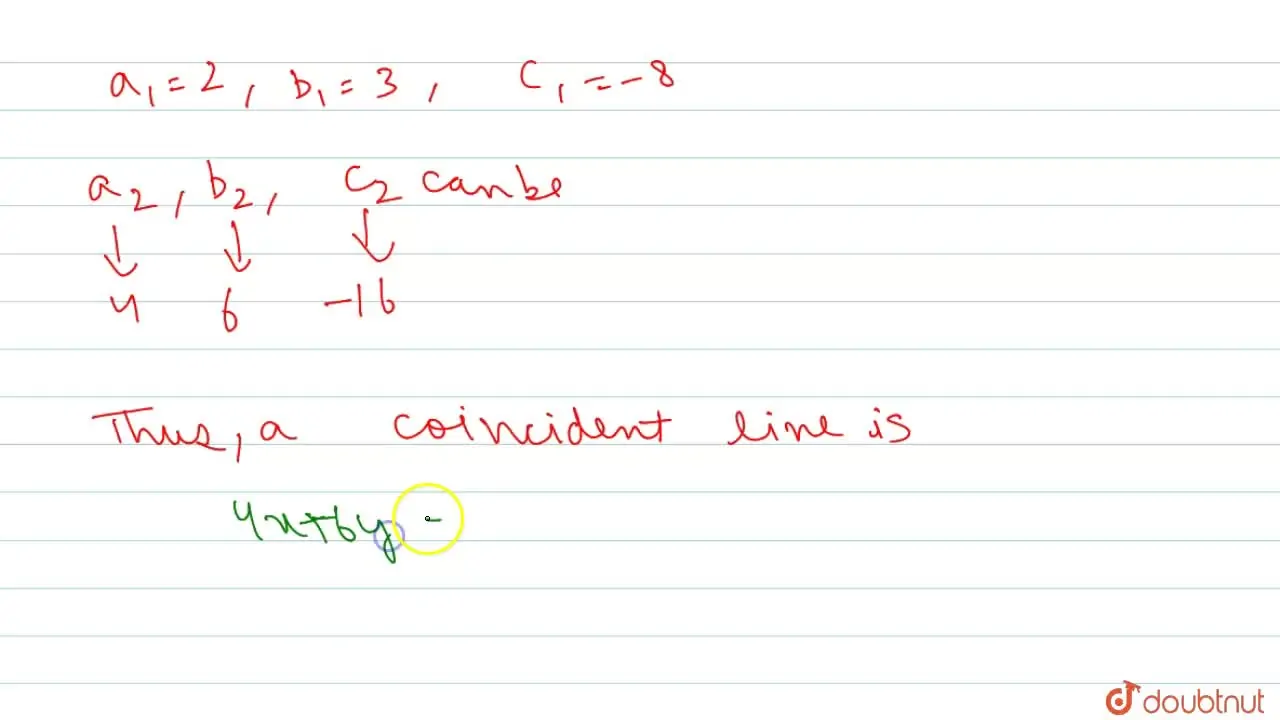 a₁ = 2, b₁ = 3, c₁ = -8
a₂, b₂, c₂ can be
↓ ↓ ↓
4 6 -16
Thus, a coincident line is
4x+6y -
doubtnut